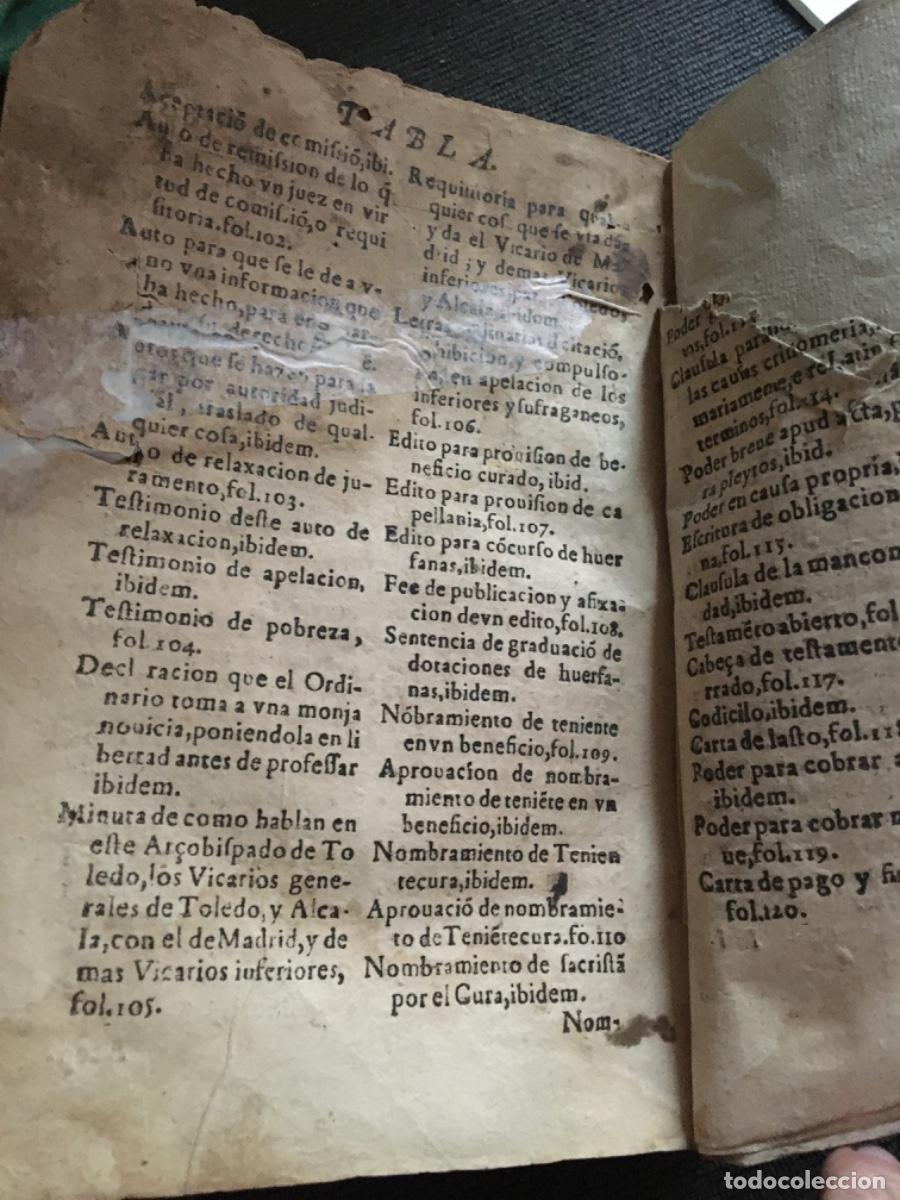 TABLA.
Aceptació de comissió, ibi.
Auto de remission de lo q̃
ha hecho vn juez en vir
tud de comissió, o requi
sitoria. fol. 102.
Auto para que se le de a v-
no vna informacion que
ha hecho, para en
derecho
que se hazen para
por autoridad judi-
al, traslado de qual-
quier cosa, ibidem.
Auto de relaxacion de ju-
ramento, fol. 103.
Testimonio deste auto de
relaxacion, ibidem.
Testimonio de apelacion,
ibidem.
Testimonio de pobreza,
fol. 104.
Decl racion que el Ordi-
nario toma a vna monja
nouicia, poniendola en li
bertad antes de professar
ibidem.
Minuta de como hablan en
este Arçobispado de To
ledo, los Vicarios gene-
rales de Toledo, y Alca-
la, con el de Madrid, y de
mas Vicarios inferiores,
fol. 105.
Requisitoria para qual-
quier cos que se
y da el Vicario de Ma
drid; y demas Vicarios
inferiores par
y Alcala, ibidem.
Letras citació,
ibicion, y compulso-
en apelacion de los
inferiores y sufraganeos,
fol. 106.
Edito para prouision de be-
neficio curado, ibid.
Edito para prouision de ca
pellania, fol. 107.
Edito para cócurso de huer
fanas, ibidem.
Fee de publicacion y afixa-
cion devn edito, fol. 108.
Sentencia de graduació de
dotaciones de huerfa-
nas, ibidem.
Nóbramiento de teniente
en vn beneficio, fol. 109.
Aprouacion de nombra-
miento de teniéte en vn
beneficio, ibidem.
Nombramiento de Tenien
tecura, ibidem.
Aprouació de nombramié-
to de Teniétecura. fo. 110
Nombramiento de sacristã
por el Cura, ibidem.
Nom-
Poder
fol.
Clausula para
las causas criminales,
terminos, fol. 114.
Poder breue apud acta, p
ra pleytos, ibid.
Poder en causa propria,
Escritura de obligacion
na, fol. 115.
Clausula de la mancom
dad, ibidem.
Testaméto abierto, fol
Cabeça de testamento
rrado, fol. 117.
Codicilo, ibidem.
Carta de lasto, fol. 118
Poder para cobrar a
ibidem.
Poder para cobrar
ue, fol. 119.
Carta de pago y fi
fol. 120.
todocoleccion